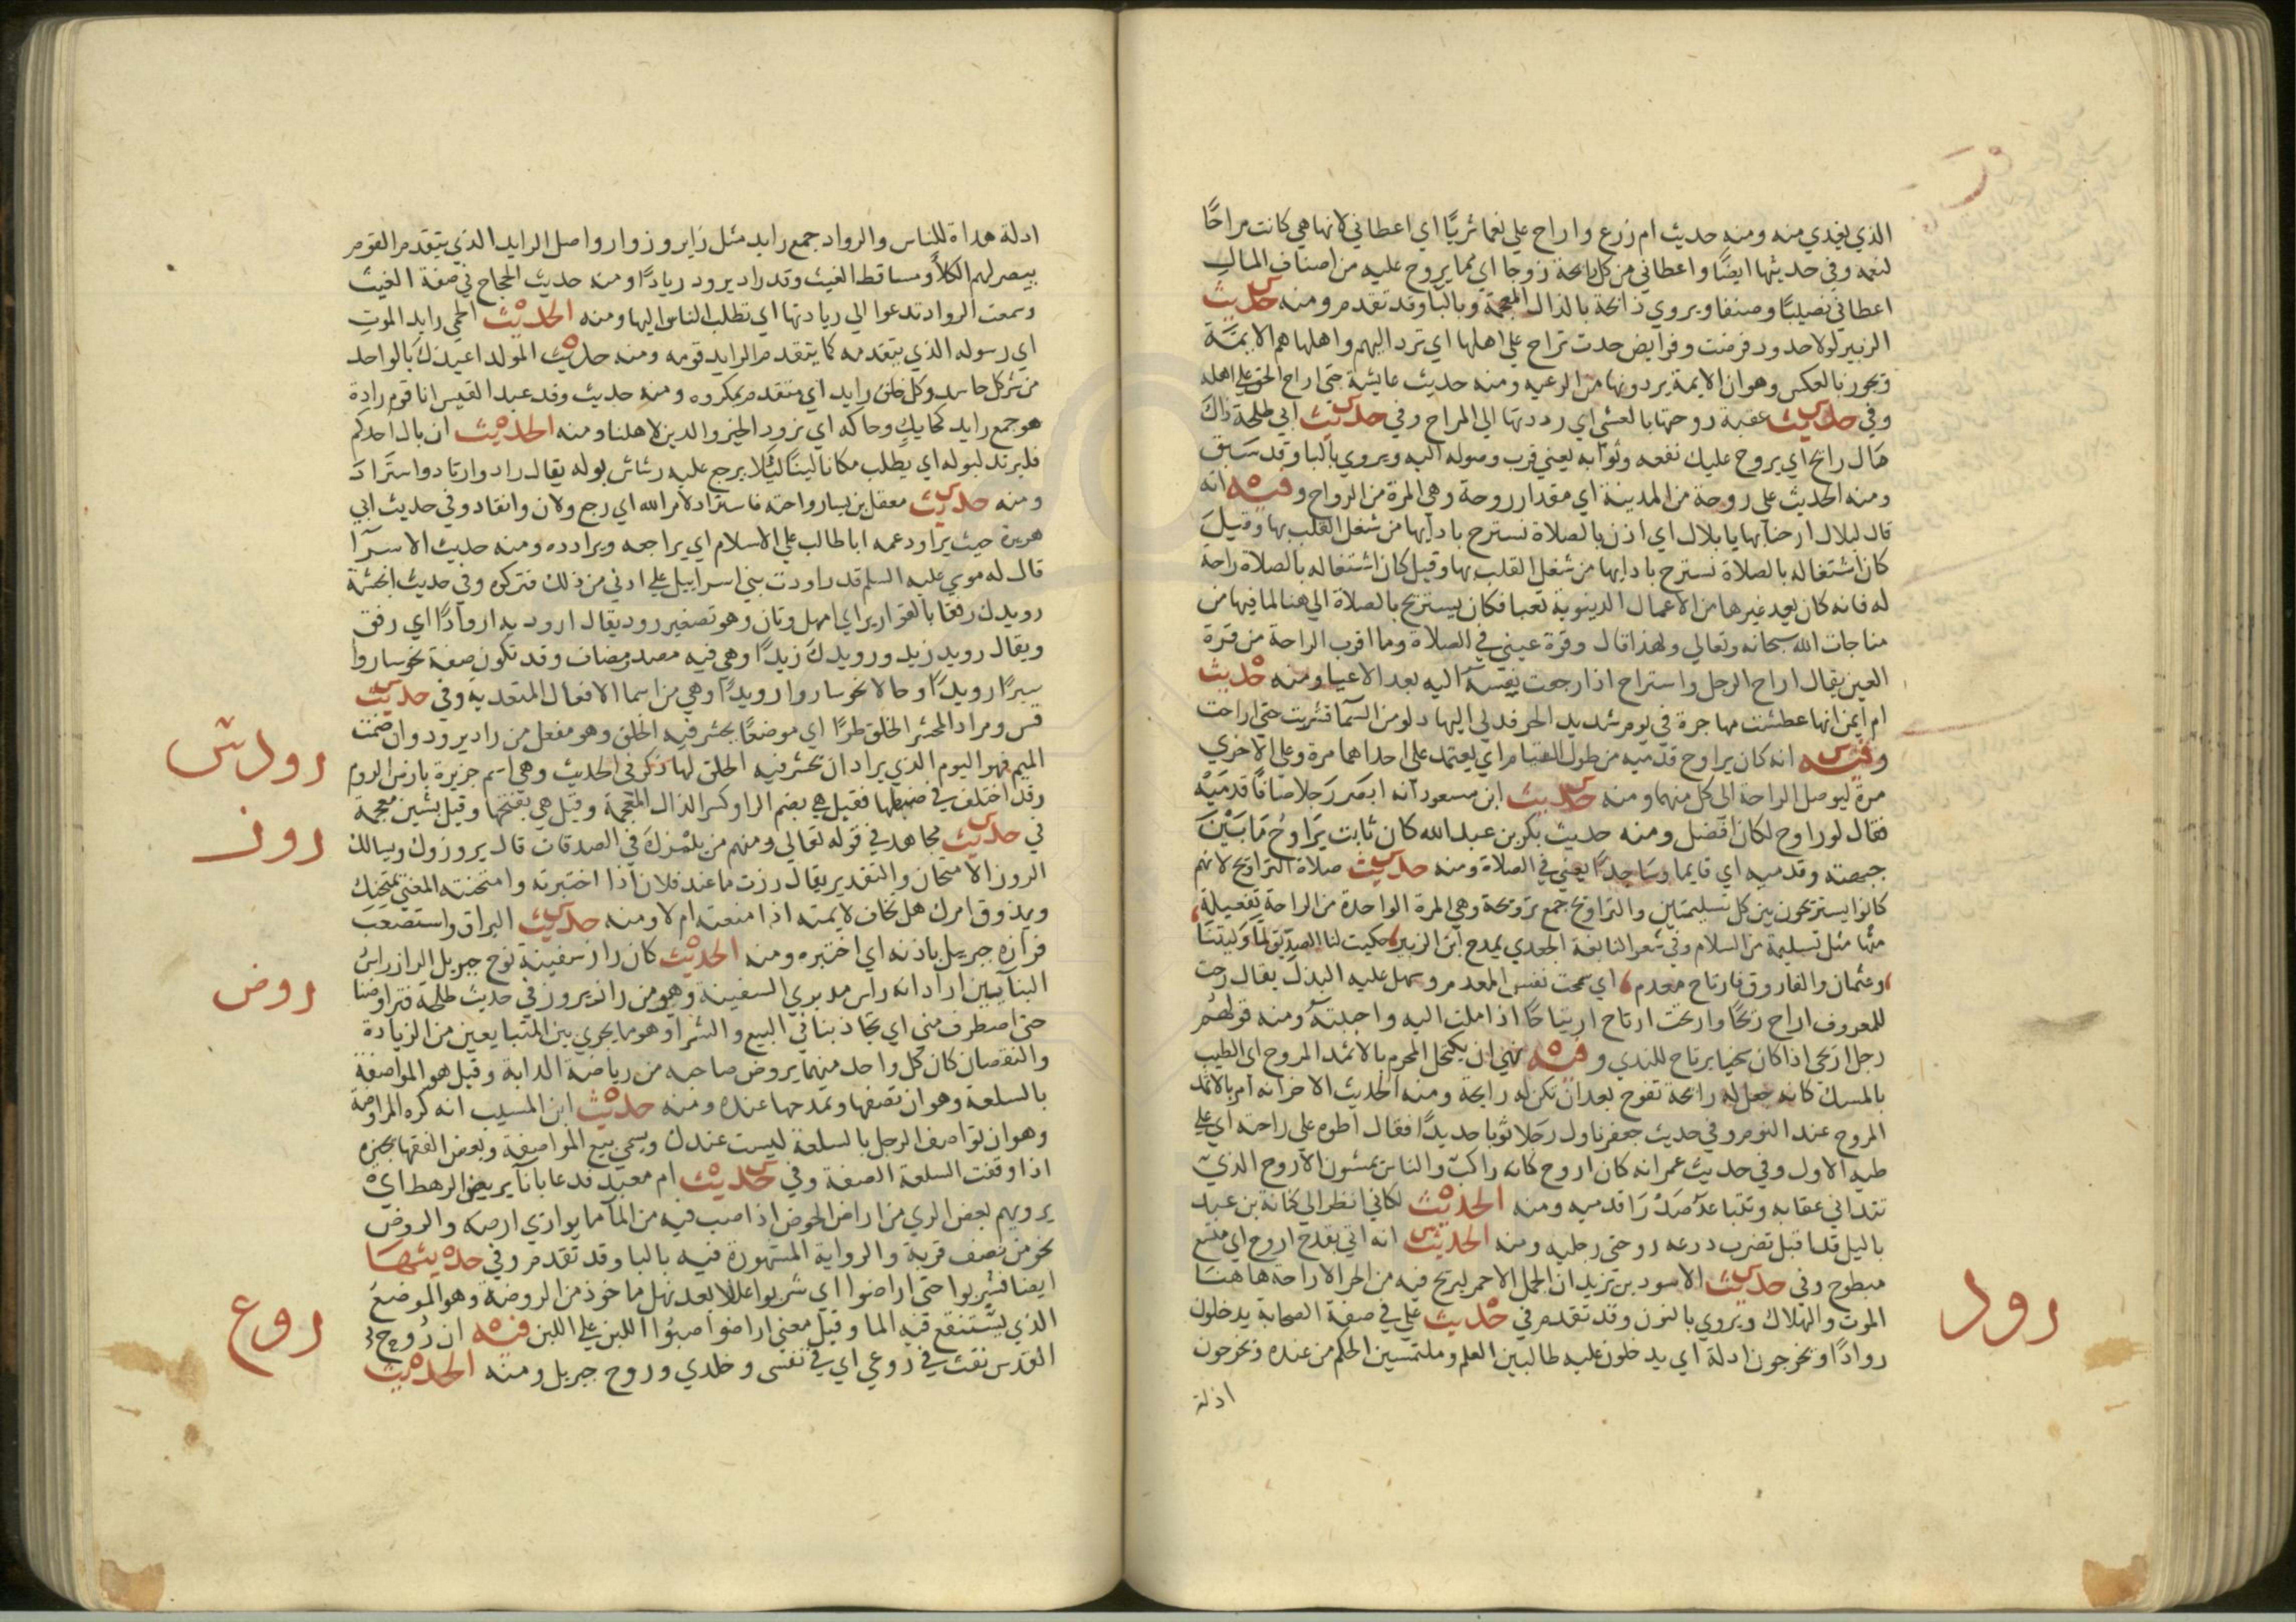 الذي يغدي منه ومنه حديث ام زرع واراح علي نعما ثريًا اي اعطاني لانها هي كانت مراحًا
لنعمه وفي حديثها ايضًا واعطاني من كل رايحة زوجا اي مما يروح عليه من اصناف المال
اعطاني نصيبًا وصنفا ويروي ذابحة بالذال المعجمة وبالبا وقد تقدم ومنه حديث
الزبير لولا حدود فرضت وفرايض حدت تراح علي اهلها اي ترد اليهم واهلها هم الايمة
ويجوز بالعكس وهو ان الايمة يردونها من الرعيه ومنه حديث عايشة حتي اراح الحق علي اهله
وفي حديث عقبة روحتها بالعشي اي رددتها الي المراح وفي حديث ابي طلحة ذاك
مال رايح اي يروح عليك نفعه وثوابه يعني قرب وصوله اليه ويروي بالبا وقد سبق
ومنه الحديث علي روحة من المدينة اي مقدار روحة وهي المرة من الرواح وفيه انه
قال لبلال ارحنا بها يا بلال اي اذن بالصلاة نسترح بادايها من شغل القلب بها وقيل
كان اشتغاله بالصلاة نسترح بادايها من شغل القلب بها وقيل كان اشتغاله بالصلاة راحة
له فانه كان يعد غيرها من الاعمال الدنيوية تعبا فكان يستريح بالصلاة الي هنا لما فيها من
مناجات الله سبحانه وتعالي ولهذا قال وقرة عيني في الصلاة وما اقرب الراحة من قرة
العين يقال اراح الرجل واستراح اذا رجعت نفسه اليه بعد الاعيا ومنه حديث
ام ايمن انها عطشت مهاجرة في يوم شديد الحر فدلي اليها دلو من السما فشربت حتي اراحت
وفيه انه كان يراوح قدميه من طول القيام اي يعتمد علي احداهما مرة وعلي الاخري
مرة ليوصل الراحة الي كل منهما ومنه حديث ابن مسعود انه ابصر رجلا صافًا قدميه
فقال لو راوح لكان افضل ومنه حديث بكر بن عبد الله كان ثابت يراوح ما بين
جبهته وقدميه اي قايما وساجدًا يعني في الصلاة ومنه حديث صلاة التراويح لانهم
كانوا يستريحون بين كل تسليمتين والتراويح جمع ترويحة وهي المرة الواحدة من الراحة تفعيلة
منها مثل تسليمة من السلام وفي شعر النابغة الجعدي يمدح ابن الزبير حكيت لنا الصديق لما وليتنا
وعثمان والفاروق فارتاح معدم اي سمحت نفس المعدم وسهل عليه البذل يقال رحت
للمعروف اراح ريحًا وارتحت ارتاح ارتياحًا اذا ملت اليه واحببته ومنه قولهم
رجل اريحي اذا كان سخيا يرتاح للندي وفيه نهي ان يكتحل المحرم بالاثمد المروح اي المطيب
بالمسك كانه جعل له رايحة تفوح بعد ان لم تكن له رايحة ومنه الحديث الاخر انه امر بالاثمد
المروح عند النوم وفي حديث جعفر ناول رجلا ثوبا جديدًا فقال اطوه علي راحته اي علي
طيه الاول وفي حديث عمر انه كان اروح كانه راكب والناس يمشون الاروح الذي
تتداني عقباه وتتباعد صدرا قدميه ومنه الحديث لكاني انظر الي كنانة بن عبد
ياليل قد اقبل تضرب درعه روحتي رجليه ومنه الحديث انه اتي بقدح اروح اي متسع
مبطوح وفي حديث الاسود بن يزيد ان الجمل الاحمر ليريح فيه من الحر الاراحة هاهنا
الموت والهلاك ويروي بالنون وقد تقدم في حديث علي في صفة الصحابة يدخلون
رود
روادًا ويخرجون ادلة اي يدخلون عليه طالبين العلم وملتمسين الحكم من عنده ويخرجون
ادلة
ادلة هداة للناس والرواد جمع رايد مثل زاير وزوار واصل الرايد الذي يتقدم القوم
يبصر لهم الكلأ ومساقط الغيث وقد راد يرود ريادًا ومنه حديث الحجاج في صفة الغيث
وسمعت الرواد تدعوا الي ريادتها اي تطلب الناس اليها ومنه الحديث الحمي رايد الموت
اي رسوله الذي يتقدمه كما يتقدم الرايد قومه ومنه حديث المولد اعيذك بالواحد
من شر كل حاسد وكل خلق رايد اي متقدم بمكروه ومنه حديث وفد عبد القيس انا قوم رادة
هو جمع رايد كحايك وحاكه اي نرود الخير والدين لاهلنا ومنه الحديث ان بال احدكم
فليرتد لبوله اي يطلب مكانا لينًا ليلا يرجع عليه رشاش بوله يقال راد وارتاد واستراد
ومنه حديث معقل بن يسار واخته فاستراد لامر الله اي رجع ولان وانقاد وفي حديث ابي
هريرة حيث يراود عمه ابا طالب علي الاسلام اي يراجعه ويرادده ومنه حديث الاسرا
قال له موسي عليه السلم قد راودت بني اسراييل علي ادني من ذلك فتركوه وفي حديث انجشة
رويدك رفقا بالقوارير اي امهل وتان وهو تصغير رود يقال ارود به اروادًا اي رفق
ويقال رويد زيد ورويدك زيدًا وهي فيه مصدر مضاف وقد تكون صفة نحو ساروا
سيرًا رويدًا وحالا نحو ساروا رويدًا وهي من اسما الافعال المتعدية وفي حديث
قس ومراد المحشر الخلق طرًا اي موضعًا يحشر فيه الخلق وهو مفعل من راد يرود وان ضمت
رودس
الميم فهو اليوم الذي يراد ان تحشر فيه الخلق لها ذكر في الحديث وهي اسم جزيرة بارض الروم
وقد اختلف في ضبطها فقيل هي بضم الرا وكسر الذال المعجمة وقيل هي بفتحها وقيل بشين معجمة
روز
في حديث مجاهد في قوله تعالي ومنهم من يلمزك في الصدقات قال يروزك ويسالك
الروز الامتحان والتقدير يقال رزت ما عند فلان اذا اختبرته وامتحنته المعني يمتحنك
ويذوق امرك هل تخاف لايمته اذا منعته ام لا ومنه حديث البراق واستصعب
فرازه جبريل باذنه اي اختبره ومنه الحديث كان راز سفينة نوح جبريل الراز راس
البنايين اراد انه راس مدبري السفينة وهو من راز يروز في حديث طلحة فتراوضنا
روض
حتي اصطرف مني اي تجاذبنا في البيع والشرا وهو ما يجري بين المتبايعين من الزيادة
والنقصان كان كل واحد منهما يروض صاحبه من رياضة الدابة وقيل هو المواصفة
بالسلعة وهو ان تصفها وتمدحها عنده ومنه حديث ابن المسيب انه كره المراوضة
وهو ان تواصف الرجل بالسلعة ليست عندك ويسمي بيع المواصفة وبعض الفقها يجيزه
اذا وافقت السلعة الصفة وفي حديث ام معبد فدعا باناء يريض الرهط اي
يرويهم بعض الري من اراض الحوض اذا صب فيه من الما ما يواري ارضه والروض
نحو من نصف قربة والرواية المشهورة فيه بالبا وقد تقدم وفي حديثها
ايضا فشربوا حتي اراضوا اي شربوا عللا بعد نهل ماخوذ من الروضة وهو الموضع
الذي يستنقع فيه الما وقيل معني اراضوا صبوا اللبن علي اللبن فيه ان روح
روع
القدس نفث في روعي اي في نفسي وخلدي وروح جبريل ومنه الحديث